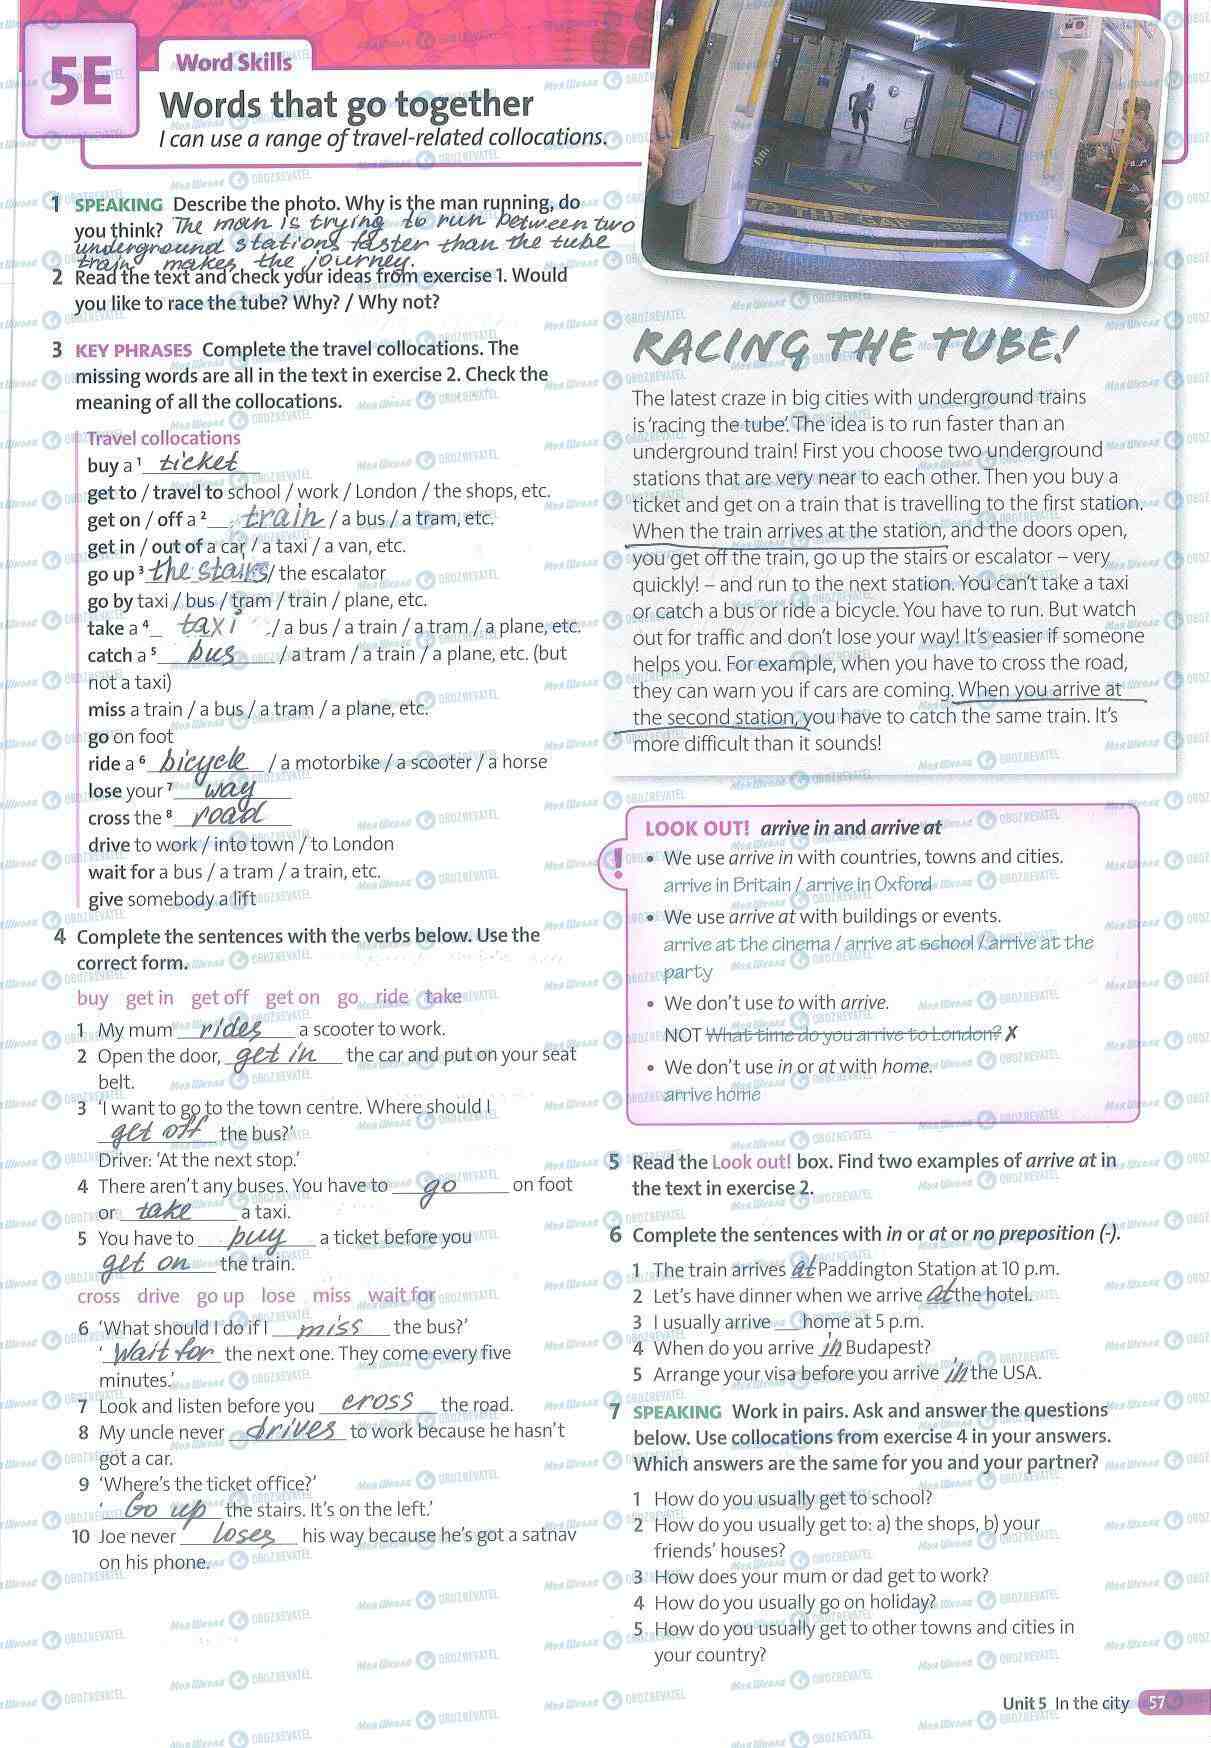 5E
Word Skills
Words that go together
I can use a range of travel-related collocations.
1 SPEAKING Describe the photo. Why is the man running, do
you think? The man is trying to run between two
underground stations faster than the tube
train makes the journey.
2 Read the text and check your ideas from exercise 1. Would
you like to race the tube? Why? / Why not?
3 KEY PHRASES Complete the travel collocations. The
missing words are all in the text in exercise 2. Check the
meaning of all the collocations.
Travel collocations
buy a 1 ticket
get to / travel to school / work / London / the shops, etc.
get on / off a 2 train / a bus / a tram, etc.
get in / out of a car / a taxi / a van, etc.
go up 3 the stairs / the escalator
go by taxi / bus / tram / train / plane, etc.
take a 4 taxi / a bus / a train / a tram / a plane, etc.
catch a 5 bus / a tram / a train / a plane, etc. (but
not a taxi)
miss a train / a bus / a tram / a plane, etc.
go on foot
ride a 6 bicycle / a motorbike / a scooter / a horse
lose your 7 way
cross the 8 road
drive to work / into town / to London
wait for a bus / a tram / a train, etc.
give somebody a lift
4 Complete the sentences with the verbs below. Use the
correct form.
buy get in get off get on go ride take
1 My mum rides a scooter to work.
2 Open the door, get in the car and put on your seat
belt.
3 ‘I want to go to the town centre. Where should I
get off the bus?’
Driver: ‘At the next stop.’
4 There aren’t any buses. You have to go on foot
or take a taxi.
5 You have to buy a ticket before you
get on the train.
cross drive go up lose miss wait for
6 ‘What should I do if I miss the bus?’
‘Wait for the next one. They come every five
minutes.’
7 Look and listen before you cross the road.
8 My uncle never drives to work because he hasn’t
got a car.
9 ‘Where’s the ticket office?’
‘Go up the stairs. It’s on the left.’
10 Joe never loses his way because he’s got a satnav
on his phone.
RACING THE TUBE!
The latest craze in big cities with underground trains
is ‘racing the tube’. The idea is to run faster than an
underground train! First you choose two underground
stations that are very near to each other. Then you buy a
ticket and get on a train that is travelling to the first station.
When the train arrives at the station, and the doors open,
you get off the train, go up the stairs or escalator – very
quickly! – and run to the next station. You can’t take a taxi
or catch a bus or ride a bicycle. You have to run. But watch
out for traffic and don’t lose your way! It’s easier if someone
helps you. For example, when you have to cross the road,
they can warn you if cars are coming. When you arrive at
the second station, you have to catch the same train. It’s
more difficult than it sounds!
LOOK OUT! arrive in and arrive at
! • We use arrive in with countries, towns and cities.
arrive in Britain / arrive in Oxford
• We use arrive at with buildings or events.
arrive at the cinema / arrive at school / arrive at the
party
• We don’t use to with arrive.
NOT What time do you arrive to London? ✗
• We don’t use in or at with home.
arrive home
5 Read the Look out! box. Find two examples of arrive at in
the text in exercise 2.
6 Complete the sentences with in or at or no preposition (-).
1 The train arrives at Paddington Station at 10 p.m.
2 Let’s have dinner when we arrive at the hotel.
3 I usually arrive __ home at 5 p.m.
4 When do you arrive in Budapest?
5 Arrange your visa before you arrive in the USA.
7 SPEAKING Work in pairs. Ask and answer the questions
below. Use collocations from exercise 4 in your answers.
Which answers are the same for you and your partner?
1 How do you usually get to school?
2 How do you usually get to: a) the shops, b) your
friends’ houses?
3 How does your mum or dad get to work?
4 How do you usually go on holiday?
5 How do you usually get to other towns and cities in
your country?
Unit 5 In the city 57